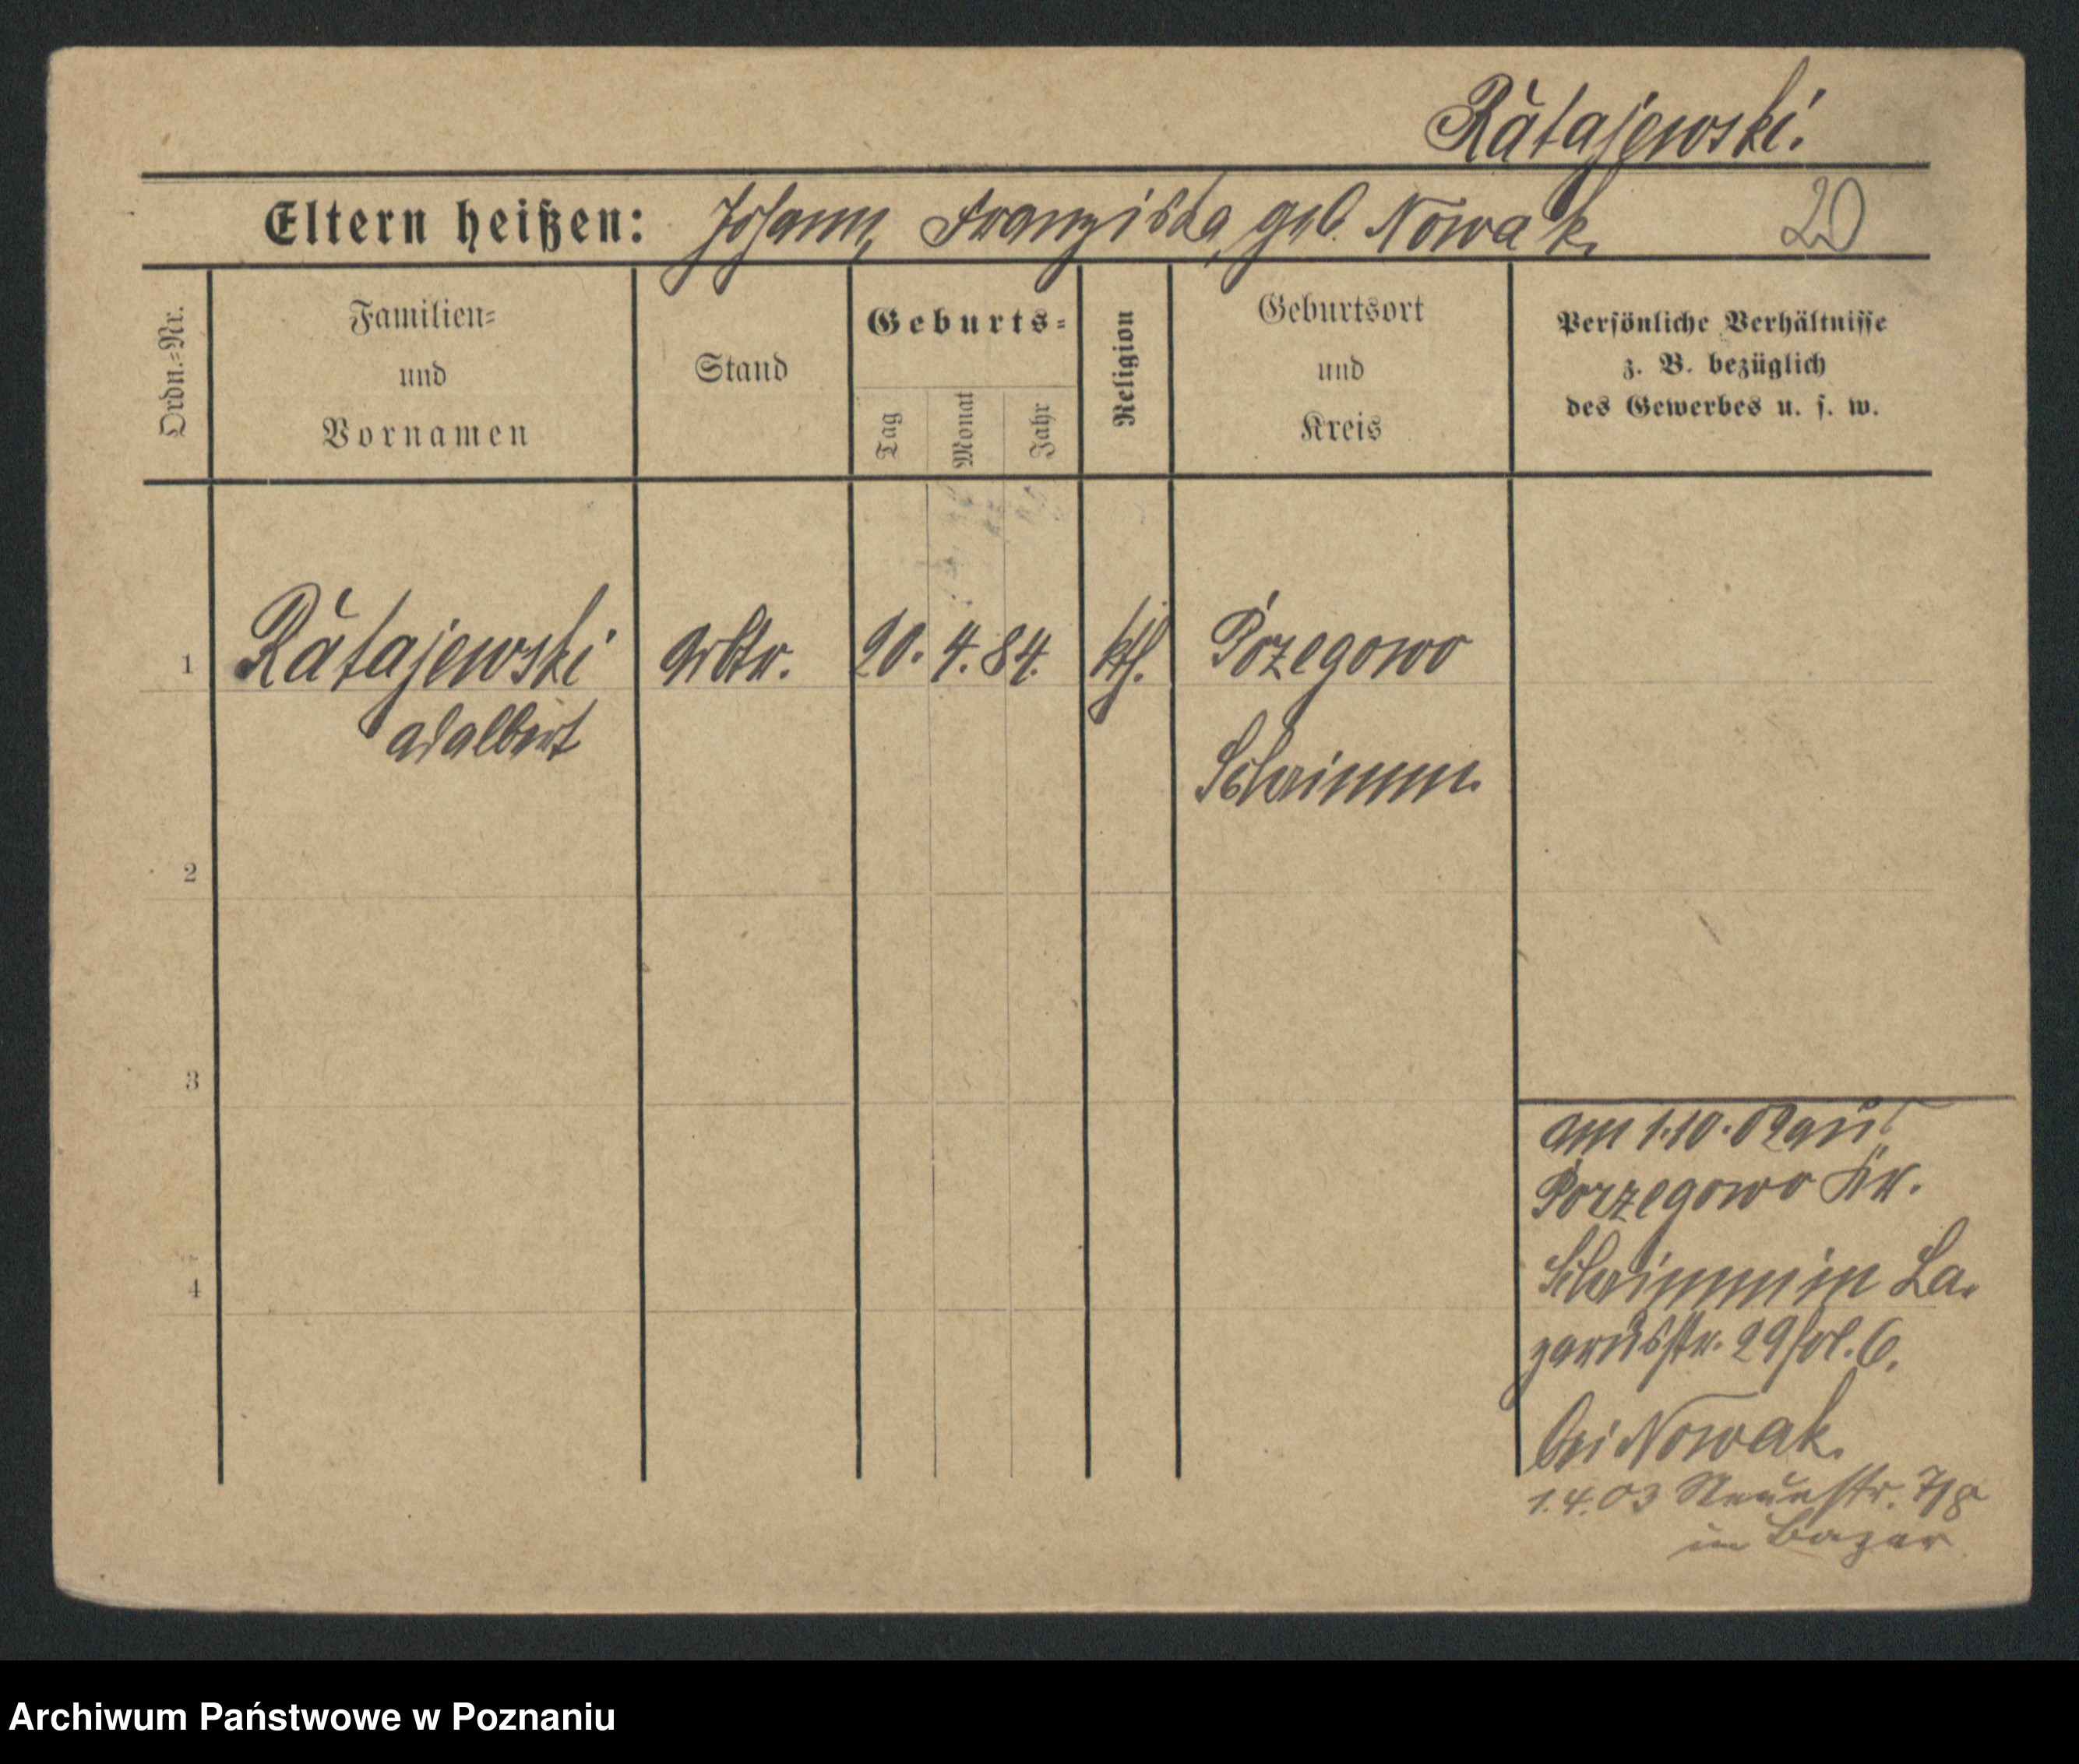 Rătajewski.
Eltern heißen: Johann, Franziska, geb. Nowak. 20
Ordn.=Nr.
Familien=
und
Vornamen
Stand
Geburts=
Tag
Monat
Jahr
Religion
Geburtsort
und
Kreis
Persönliche Verhältnisse
z. B. bezüglich
des Gewerbes u. s. w.
1 Rătajewski Arbtr. 20. 4. 84. kth. Pozegowo
Adalbert
Schrimm.
2
3
4
am 1.10.02 aus
Porzegowo Kr.
Schrimm in La-
zarusstr. 29 fol. 6.
bei Nowak.
1.4.03 Neuestr. 7/8
im Bazar
Archiwum Państwowe w Poznaniu